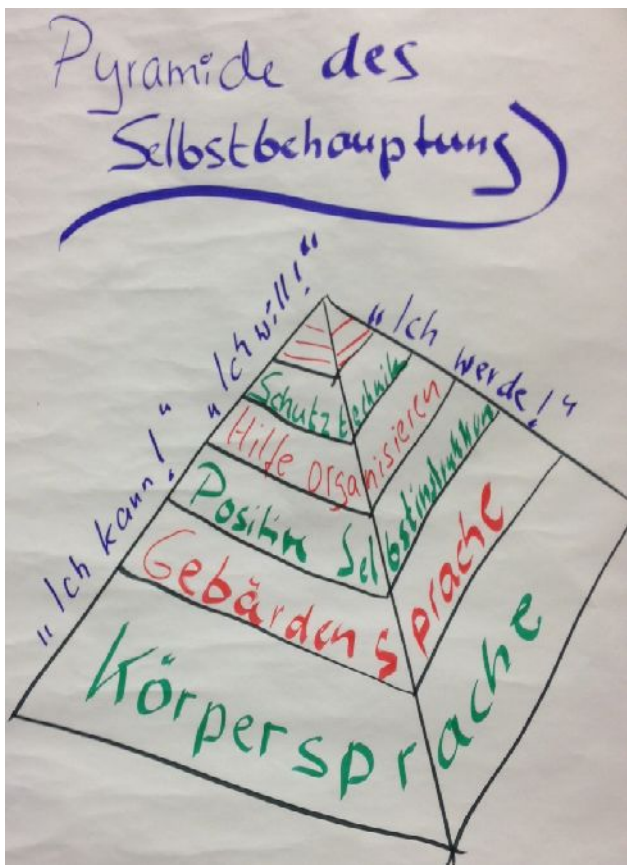 Pyramide des
Selbstbehauptung
"Ich kann!" "Ich will!"
"Ich werde!"
Schutztechnik
Hilfe organisieren
Positive Selbstinstruktion
Gebärdensprache
Körpersprache